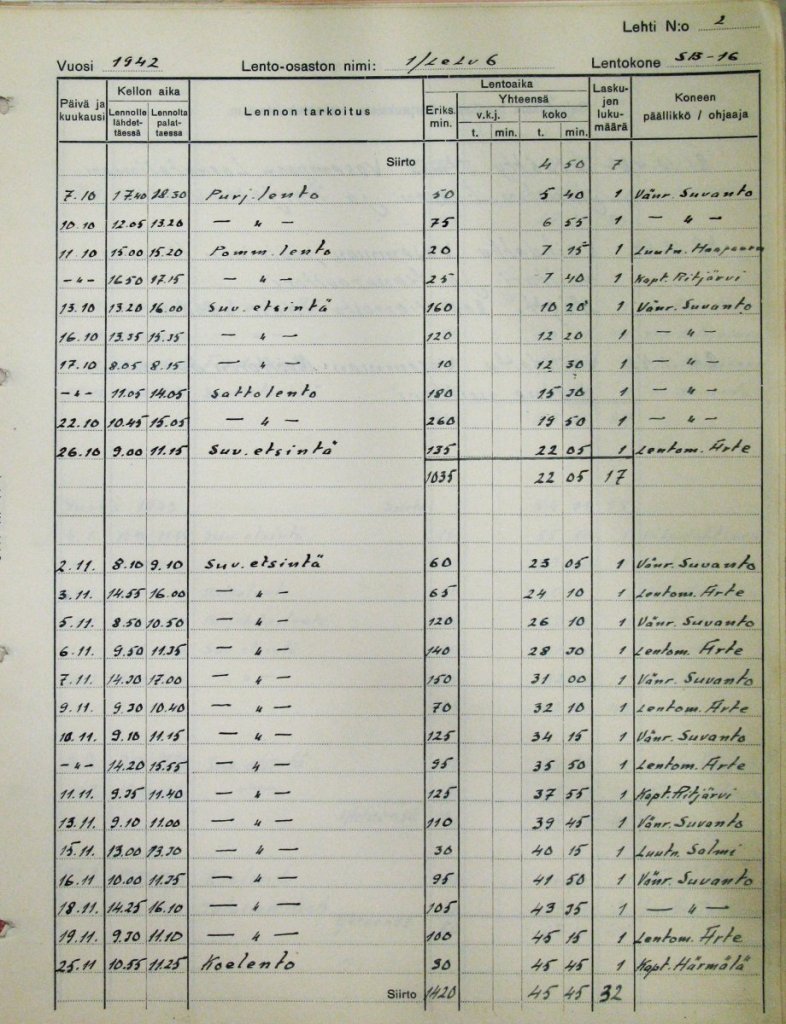 Lehti N:o 2
Vuosi 1942 Lento-osaston nimi: 1/LeLv 6 Lentokone SB-16
Päivä ja kuukausi Kellon aika Lennon tarkoitus Eriks. min. Lentoaika Laskujen lukumäärä Koneen päällikkö / ohjaaja
Lennolle lähdettäessä Lennolta palattaessa Yhteensä
v.k.j. koko
t. min. t. min.
Siirto 4 50 7
7.10 17.40 18.30 Purj.lento 50 5 40 1 Vänr. Suvanto
10.10 12.05 13.20 — " — 75 6 55 1 — " —
11.10 15.00 15.20 Pomm.lento 20 7 15 1 Luutn. Haapanen
-"- 16.50 17.15 — " — 25 7 40 1 Kapt. Ritjärvi
13.10 13.20 16.00 Suv. etsintä 160 10 20 1 Vänr. Suvanto
16.10 13.35 15.35 — " — 120 12 20 1 — " —
17.10 8.05 8.15 — " — 10 12 30 1 — " —
-"- 11.05 14.05 Sottolento 180 15 30 1 — " —
22.10 10.45 15.05 — " — 260 19 50 1 — " —
26.10 9.00 11.15 Suv. etsintä 135 22 05 1 Lentom. Ärte
1035 22 05 17
2.11. 8.10 9.10 Suv. etsintä 60 23 05 1 Vänr. Suvanto
3.11. 14.55 16.00 — " — 65 24 10 1 Lentom. Ärte
5.11. 8.50 10.50 — " — 120 26 10 1 Vänr. Suvanto
6.11. 9.50 11.35 — " — 140 28 30 1 Lentom. Ärte
7.11. 14.30 17.00 — " — 150 31 00 1 Vänr. Suvanto
9.11. 9.30 10.40 — " — 70 32 10 1 Lentom. Ärte
10.11. 9.10 11.15 — " — 125 34 15 1 Vänr. Suvanto
-"- 14.20 15.55 — " — 95 35 50 1 Lentom. Ärte
11.11. 9.35 11.40 — " — 125 37 55 1 Kapt. Ritjärvi
13.11. 9.10 11.00 — " — 110 39 45 1 Vänr. Suvanto
15.11. 13.00 13.30 — " — 30 40 15 1 Luutn. Salmi
16.11 10.00 11.35 — " — 95 41 50 1 Vänr. Suvanto
18.11. 14.25 16.10 — " — 105 43 35 1 — " —
19.11. 9.30 11.10 — " — 100 45 15 1 Lentom. Ärte
25.11 10.55 11.25 Koelento 30 45 45 1 Kapt. Härmälä
Siirto 1420 45 45 32